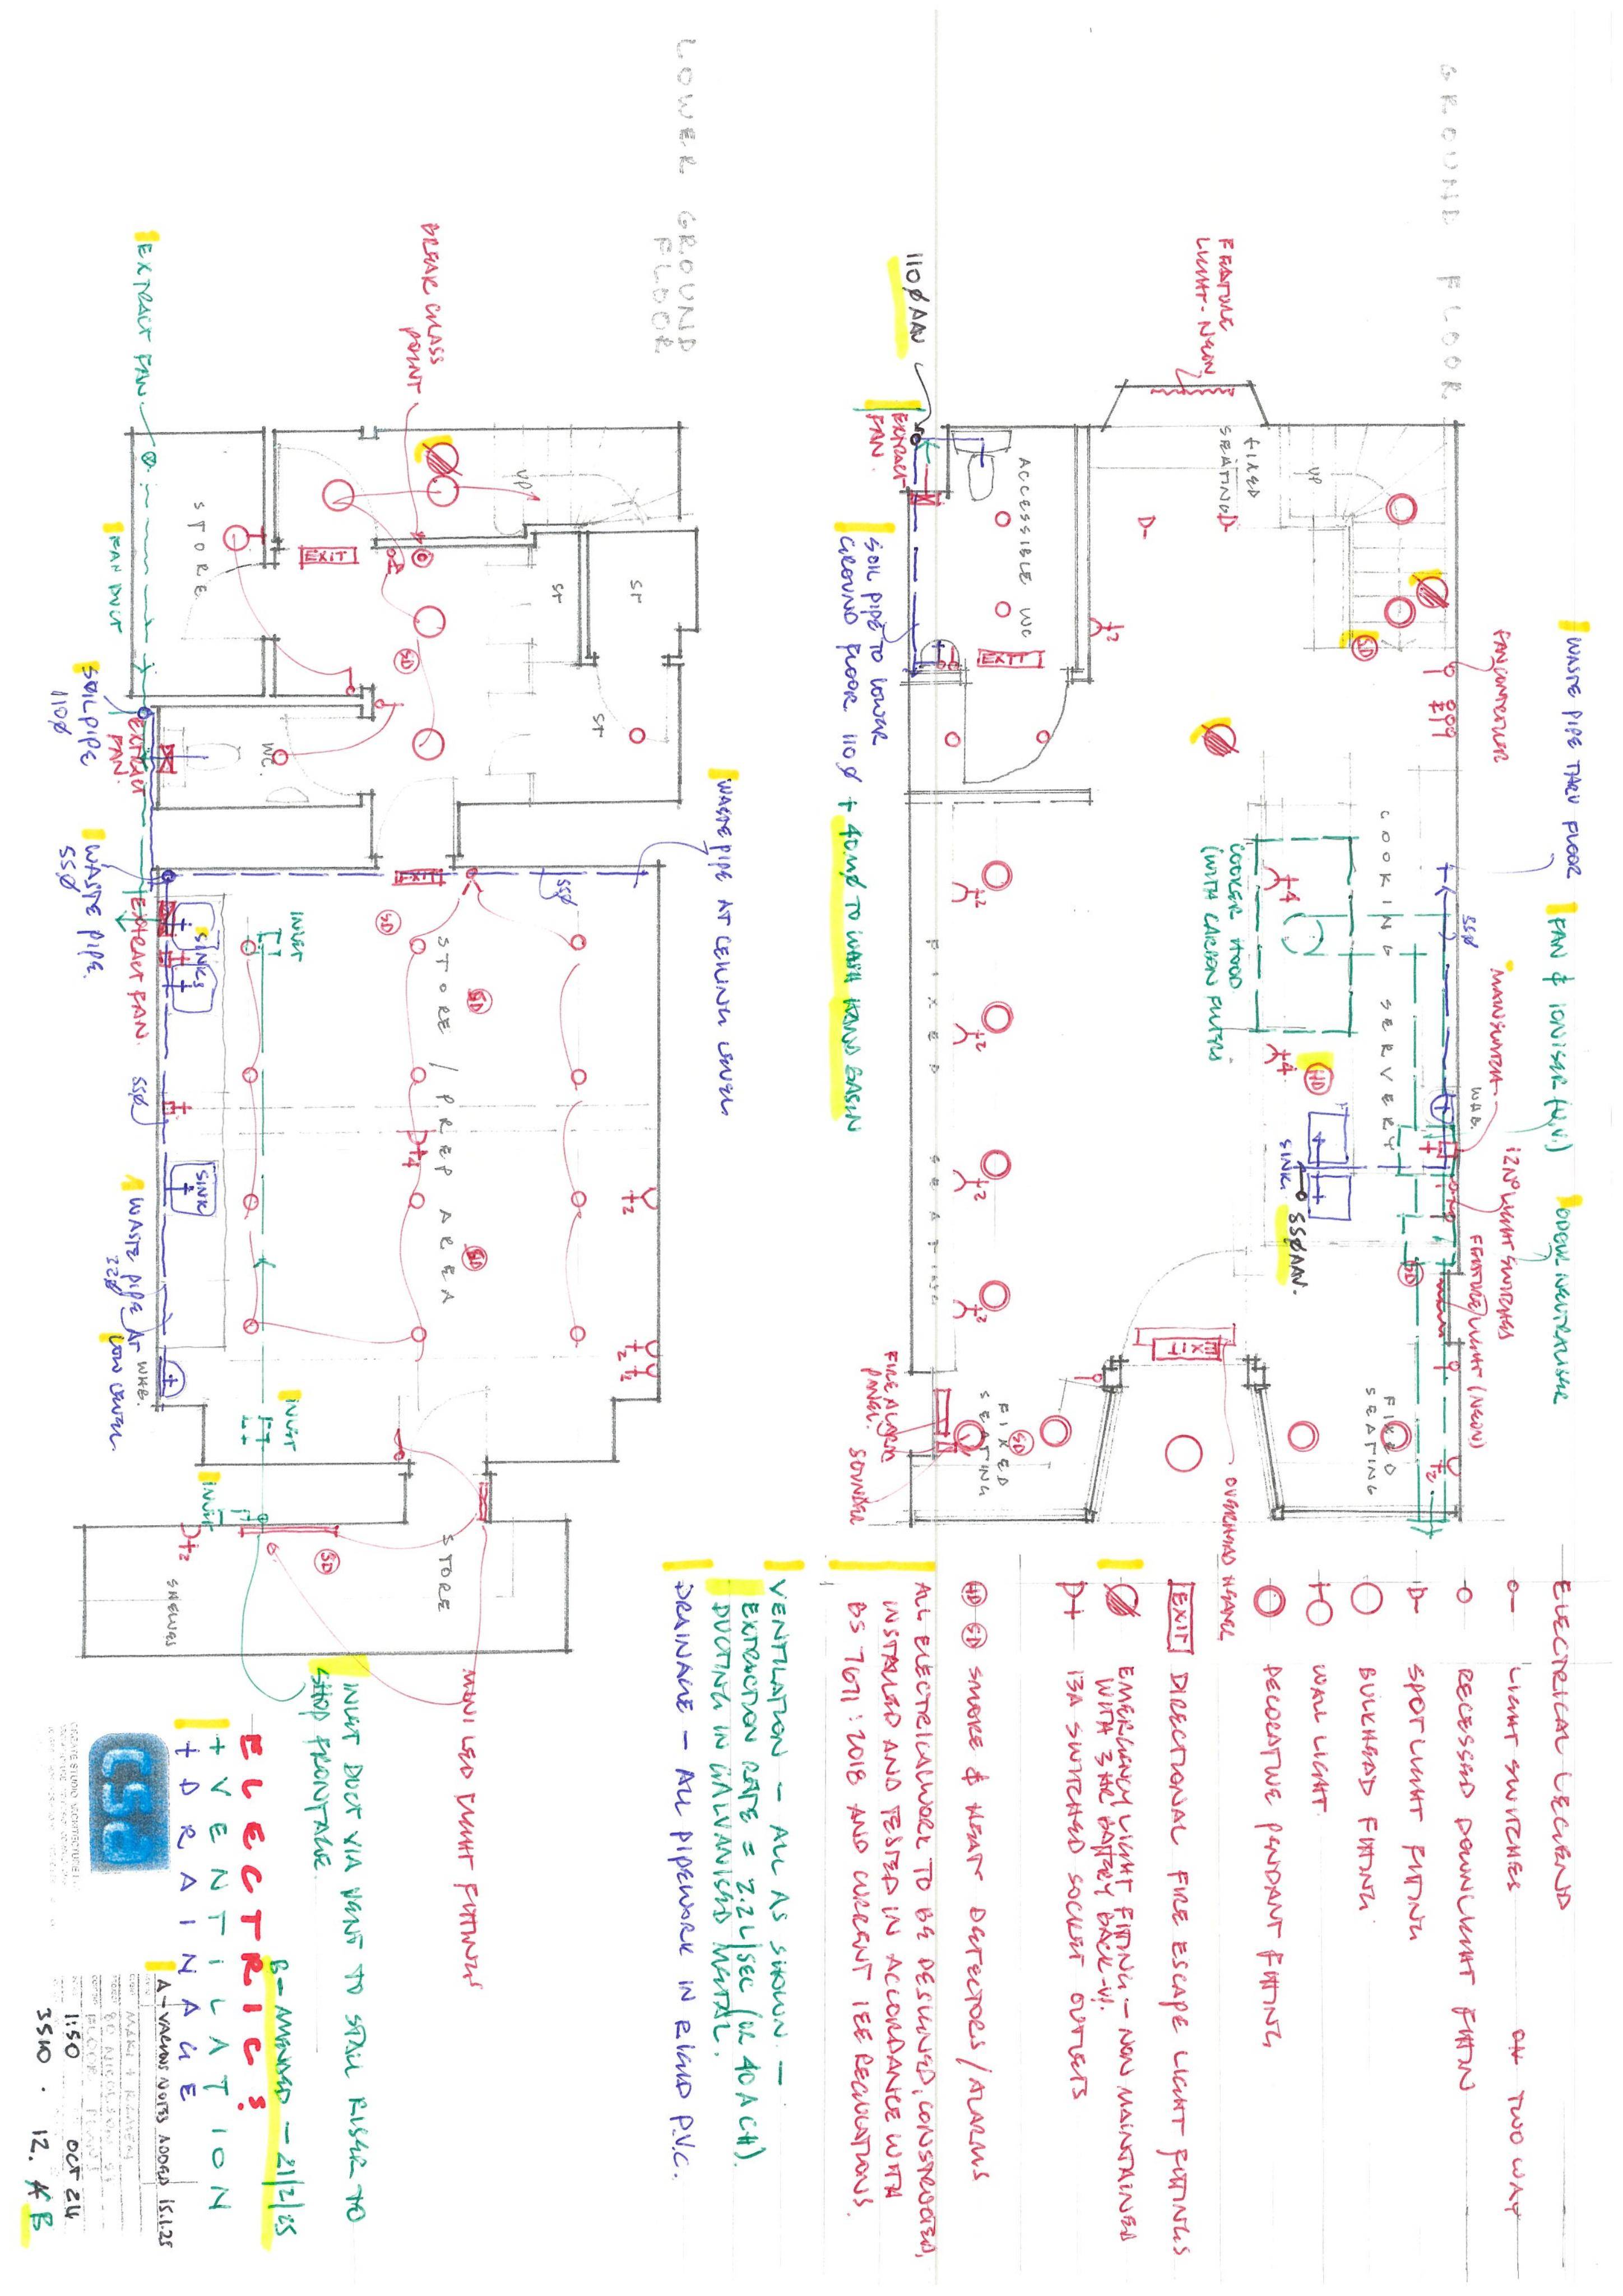 GROUND FLOOR
WASTE PIPE THRU FLOOR
FAN & IONISER (U.V.)
ODOUR NEUTRALISER
FEATURE
LIGHT - NEON
FAN CONTROLLER
55Ø
MAIN SWITCH
W.H.B.
12Nº LIGHT SWITCHES
FEATURE LIGHT (NEON)
UP
FIXED
SEATING
SD
COOKING SERVERY
COOKER HOOD
(WITH CARBON FILTERS)
HD
SINK
55ØAAV.
HD
FIXED
SEATING
EXIT
OVERHEAD HEATER
ACCESSIBLE WC
EXIT
FIXED SEATING
FIXED
SEATING
SD
FIRE ALARM
PANEL
SOUNDER
110ØAAV
EXTRACT
FAN
SOIL PIPE TO LOWER
GROUND FLOOR 110Ø + 40mØ TO WASH HAND BASIN
LOWER GROUND
FLOOR
BREAK GLASS
POINT
WASTE PIPE AT CEILING LEVEL
UP
ST
ST
ST
EXIT
SD
STORE
WC.
EXTRACT FAN
FAN DUCT
SOIL PIPE
110Ø
EXTRACT
FAN.
WASTE PIPE.
55Ø
EXTRACT FAN.
EXIT
55Ø
SD
INLET
SINKS
STORE / PREP AREA
SD
SD
55Ø
SINK
WASTE PIPE AT
LOW LEVEL
W.H.B.
INLET
INLET
STORE
SD
SHELVES
MINI LED LIGHT FITTINGS
INLET DUCT VIA VENT TO STALL RISER TO
SHOP FRONTAGE
ELECTRICAL LEGEND
LIGHT SWITCHES
TWO WAY
RECESSED DOWNLIGHT FITTING
SPOTLIGHT FITTING
BULKHEAD FITTING.
WALL LIGHT.
DECORATIVE PENDANT FITTING
EXIT DIRECTIONAL FIRE ESCAPE LIGHT FITTINGS
EMERGENCY LIGHT FITTING - NON MAINTAINED
WITH 3HR BATTERY BACK-UP.
13A SWITCHED SOCKET OUTLETS
HD SD SMOKE & HEAT DETECTORS / ALARMS
ALL ELECTRICAL WORK TO BE DESIGNED, CONSTRUCTED,
INSTALLED AND TESTED IN ACCORDANCE WITH
BS 7671 : 2018 AND CURRENT IEE REGULATIONS.
VENTILATION - ALL AS SHOWN -
EXTRACTION RATE = 2.2L/SEC (OR 40 ACH).
DUCTING IN GALVANISED METAL.
DRAINAGE - ALL PIPEWORK IN RIGID P.V.C.
ELECTRICS
+ VENTILATION
+ DRAINAGE
B - AMENDED - 21/2/25
A - VARIOUS NOTES ADDED 15.1.25
CSA
1:50 OCT 24
3510 . 12. A B